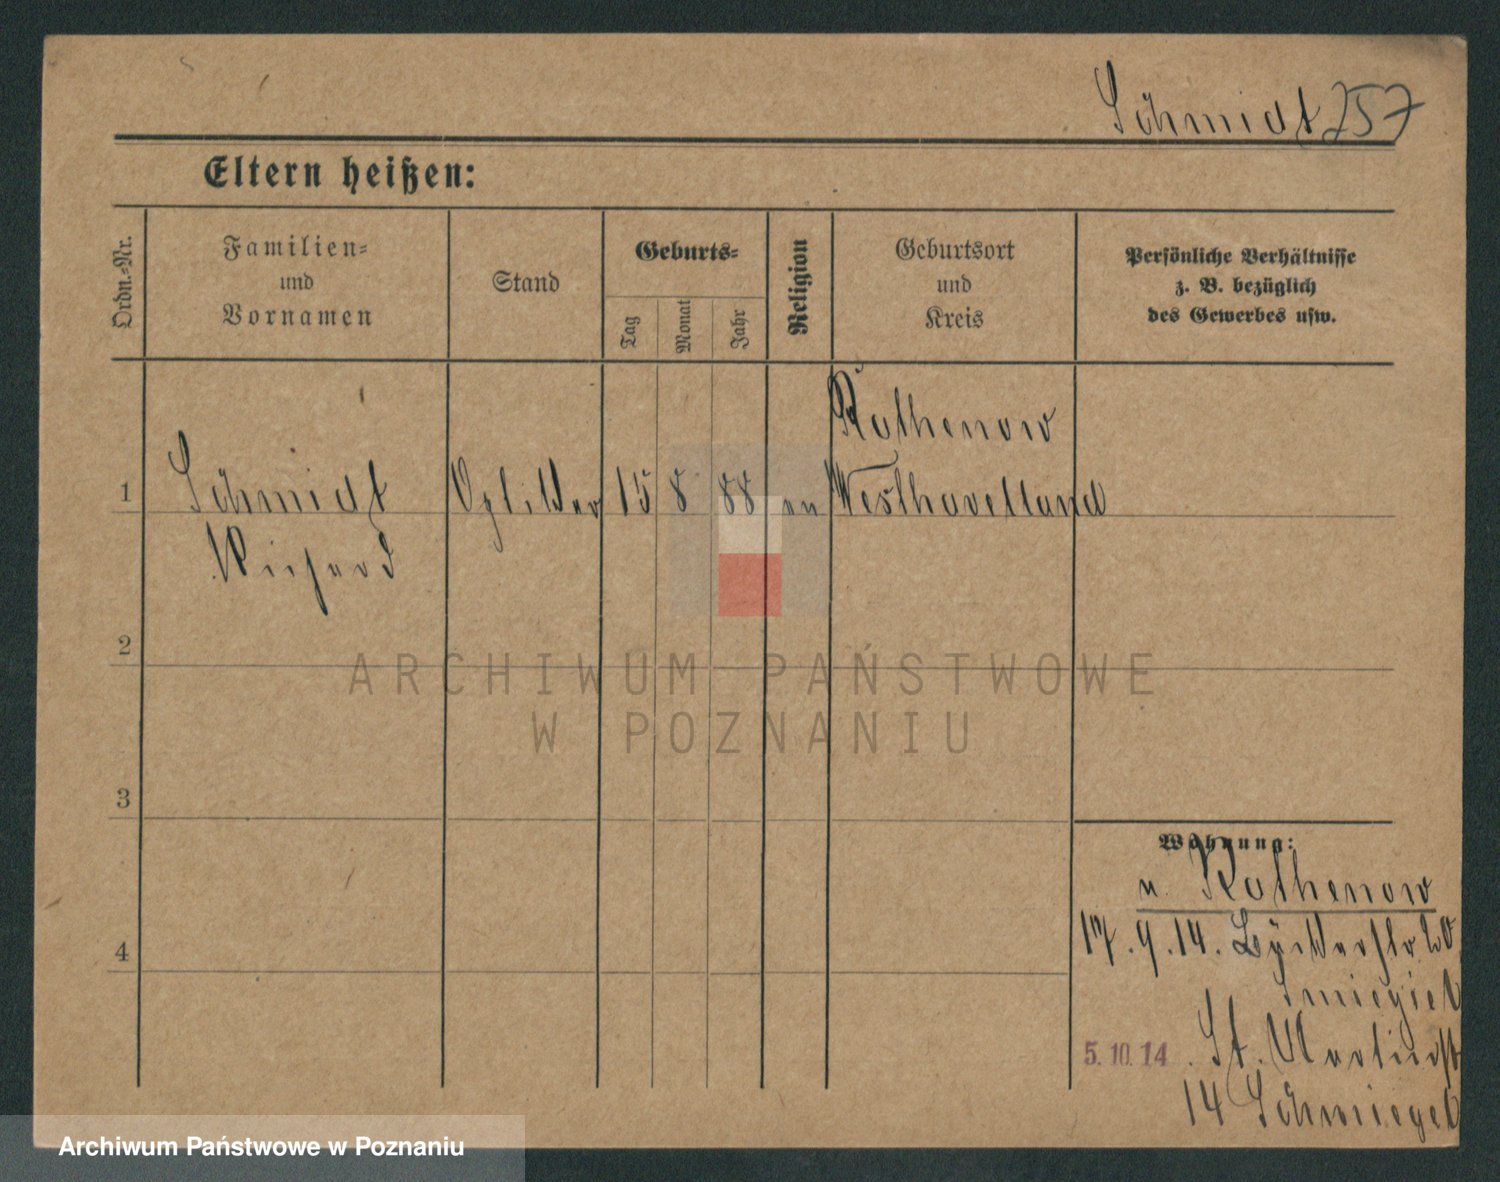 Schmidt 257
Eltern heißen:
Ordn.=Nr.
Familien=
und
Vornamen
Stand
Geburts=
Tag
Monat
Jahr
Religion
Geburtsort
und
Kreis
Persönliche Verhältnisse
z. B. bezüglich
des Gewerbes usw.
Rathenow
1 Schmidt 15 8 88 ev Westhavelland
Richard
2
3
4
Wohnung:
n. Rathenow
17.9.14. 20
Smiegiel
5.10.14. St. Martinstr
14 Schmiegel
ARCHIWUM PAŃSTWOWE
W POZNANIU
Archiwum Państwowe w Poznaniu